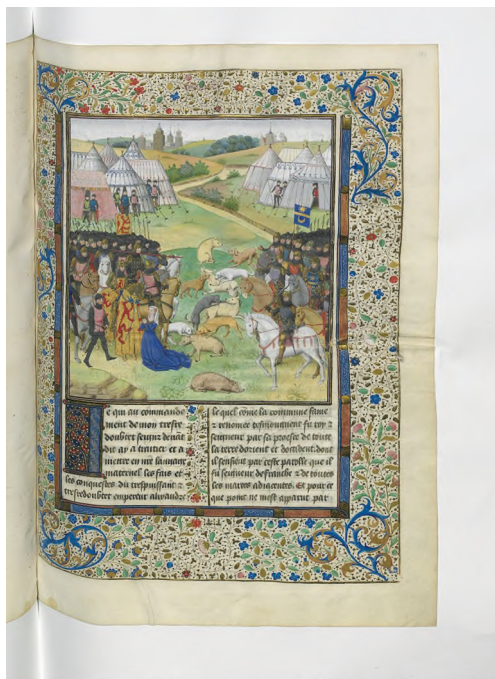 e qui au commande
ment de mon tresre
doubte seigneur denat
dit ay a traitier et a
mettre en mr lanuant
maternel les fais et
les conquestes du trespuissant
tresredoubte empereur alixandre
le quel come la commune fame
z renomee tesmoingnent fu roy z
seigneur par sa proesse de toute
la terre dorient et doccident, dont
il sensieut par ceste parolle que il
fu seigneur de france z de toutes
les marces adiacentes. Et pour ce
que point ne mest apparu par